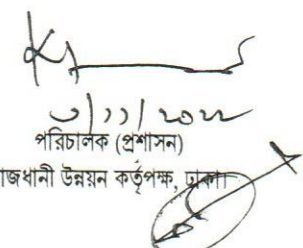 ০১/১১/২০২২
পরিচালক (প্রশাসন)
রাজধানী উন্নয়ন কর্তৃপক্ষ, ঢাকা